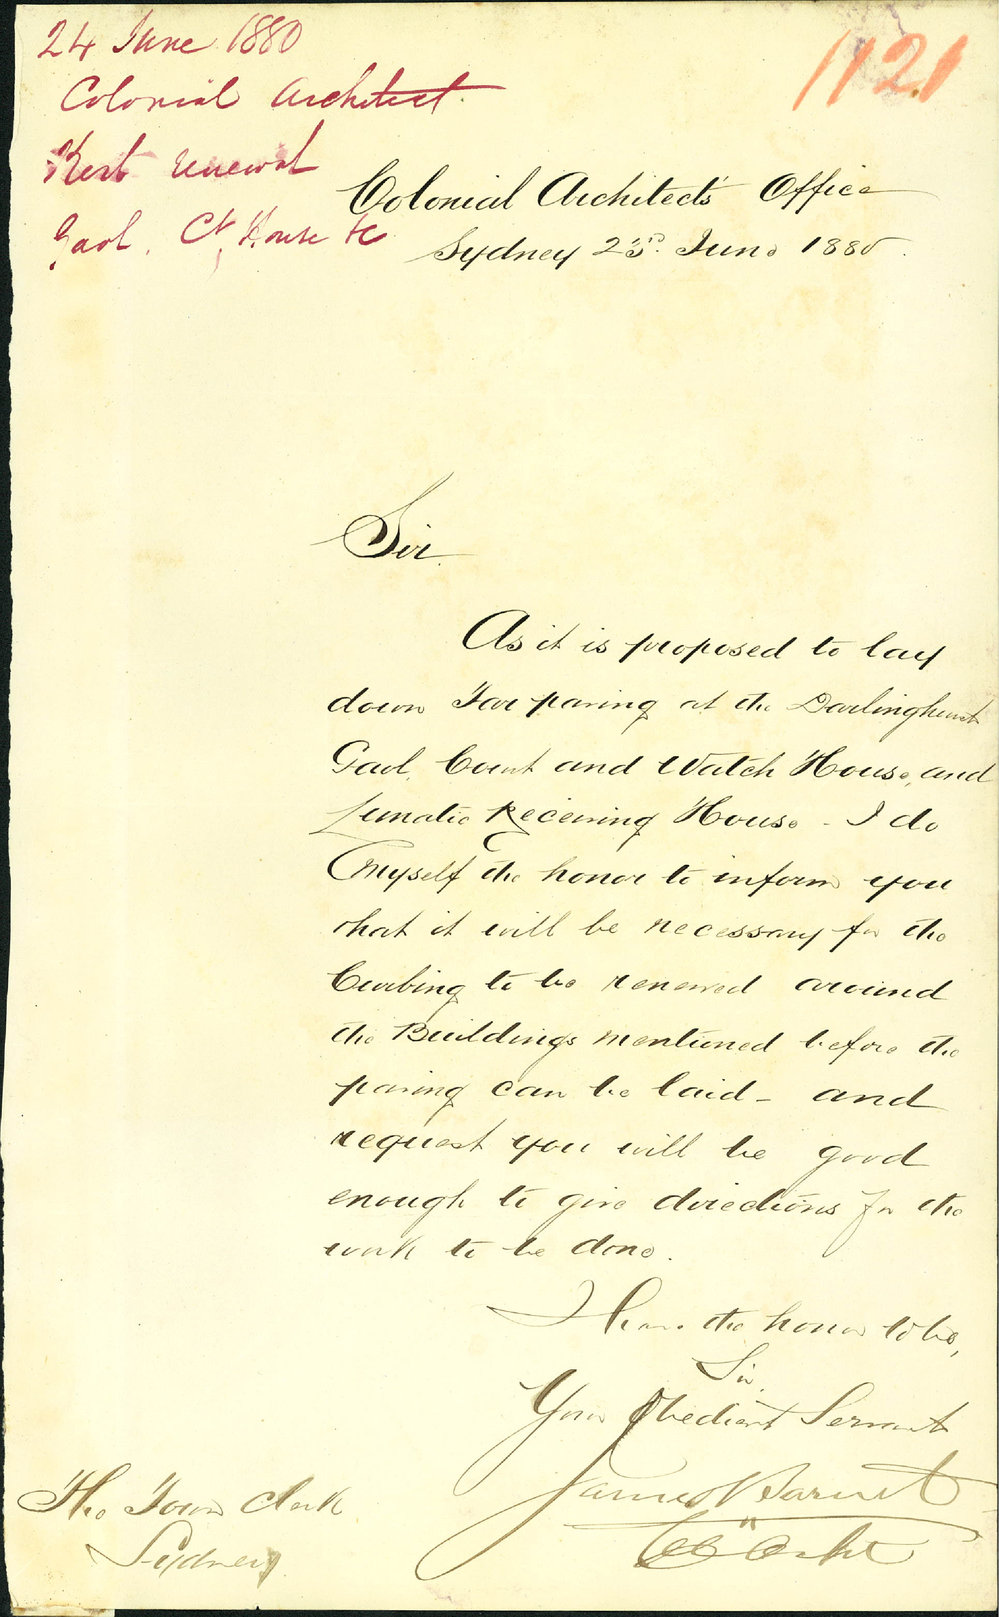 24 June 1880
Colonial Architect
Kerb renewal
Gaol, Ct House &c
1121
Colonial Architect's Office
Sydney 23rd June 1880.
Sir.
As it is proposed to lay
down Tar paving at the Darlinghurst
Gaol, Court and Watch House, and
Lunatic Receiving House - I do
myself the honor to inform you
that it will be necessary for the
Curbing to be renewed around
the Buildings mentioned before the
paving can be laid - and
request you will be good
enough to give directions for the
work to be done.
I have the honor to be,
Sir,
Your Obedient Servant
James Barnet
Col Archt
The Town Clerk
Sydney